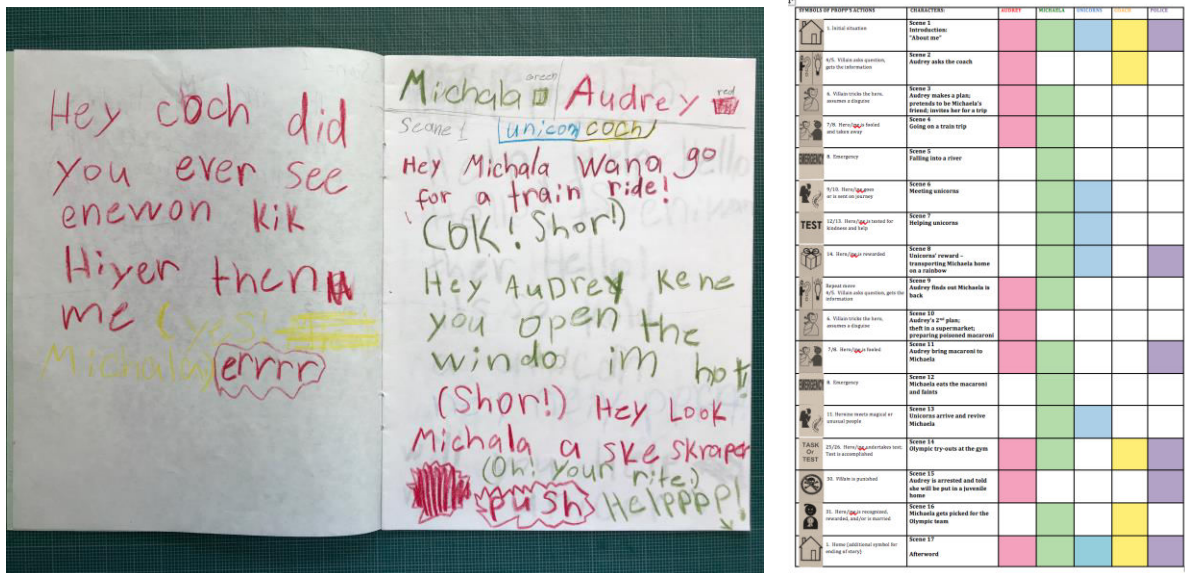 Hey coch did
you ever see
enewon kik
Hiyer then
me (yes!
Michala)
errrr
Michala green Audrey red
Scene 1 unicorn coch
Hey Michala Wana go
for a train ride!
(OK! Shor!)
Hey AuDrey Kene
you open the
windo im hot!
(Shor!) Hey Look
Michala a ske skraper
(Oh! your rite!)
push Helpppp!
SYMBOLS OF PROPP'S ACTIONS CHARACTERS: AUDREY MICHAELA UNICORNS COACH POLICE
1. Initial situation
Scene 1
Introduction:
"About me"
4/5. Villain asks question,
gets the information
Scene 2
Audrey asks the coach
6. Villain tricks the hero,
assumes a disguise
Scene 3
Audrey makes a plan;
pretends to be Michaela's
friend; invites her for a trip
7/8. Hero/ine is fooled
and taken away
Scene 4
Going on a train trip
EMERGENCY
8. Emergency
Scene 5
Falling into a river
9/10. Hero/ine goes
or is sent on journey
Scene 6
Meeting unicorns
TEST
12/13. Hero/ine is tested for
kindness and help
Scene 7
Helping unicorns
14. Hero/ine is rewarded
Scene 8
Unicorns' reward –
transporting Michaela home
on a rainbow
Repeat move
4/5. Villain asks question, gets the
information
Scene 9
Audrey finds out Michaela is
back
6. Villain tricks the hero,
assumes a disguise
Scene 10
Audrey's 2nd plan;
theft in a supermarket;
preparing poisoned macaroni
7/8. Hero/ine is fooled
Scene 11
Audrey bring macaroni to
Michaela
EMERGENCY
8. Emergency
Scene 12
Michaela eats the macaroni
and faints
11. Heroine meets magical or
unusual people
Scene 13
Unicorns arrive and revive
Michaela
TASK
Or
TEST
25/26. Hero/ine undertakes test.
Test is accomplished
Scene 14
Olympic try-outs at the gym
30. Villain is punished
Scene 15
Audrey is arrested and told
she will be put in a juvenile
home
31. Hero/ine is recognized,
rewarded, and/or is married
Scene 16
Michaela gets picked for the
Olympic team
1. Home (additional symbol for
ending of story)
Scene 17
Afterword